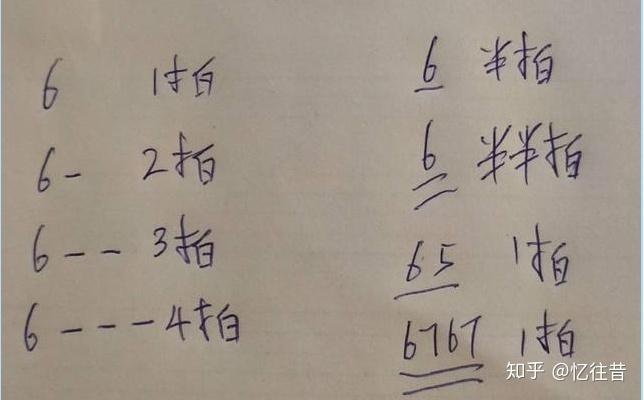 6 1拍
6- 2拍
6-- 3拍
6---4拍
6 半拍
6 半半拍
65 1拍
6767 1拍
知乎 @忆往昔